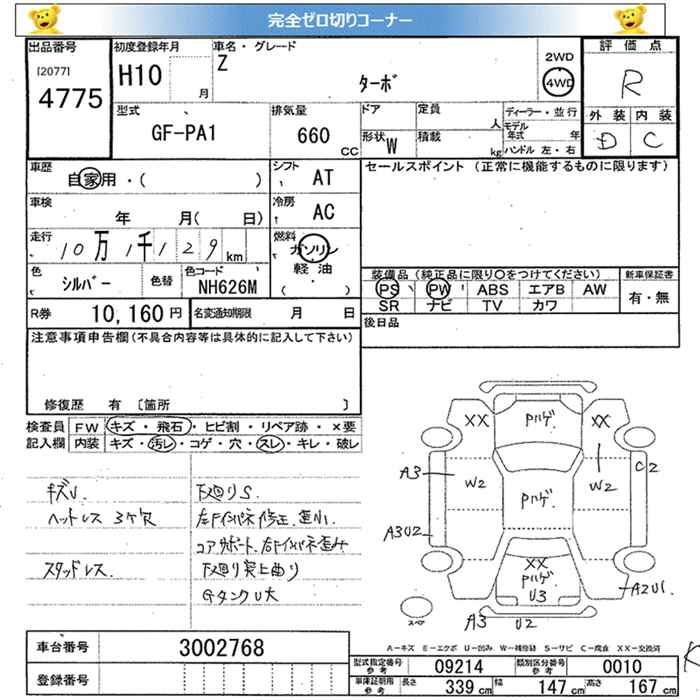 完全ゼロ切りコーナー
出品番号 初度登録年月 車名・グレード 2WD 評価点
[2077] H10 月 Z ターボ 4WD R
4775
型式 排気量 ドア 定員 人 ディーラー・並行 外装 内装
GF-PA1 660 CC 形状 W 積載 kg モデル年式 年 D C
ハンドル 左・右
車歴 自家用・( ) シフト AT セールスポイント (正常に機能するものに限ります)
車検 年 月( 日) 冷房 AC
走行 10万1千129km 燃料 ガソリン 軽油 ( ・ )
装備品 (純正品に限り○をつけてください) 新車保証書
色 シルバー 色替 色コード NH626M PS PW ABS エアB AW 有・無
SR ナビ TV カワ
R券 10,160円 名変通知期限 月 日 後日品
注意事項申告欄(不具合内容等は具体的に記入して下さい)
修復歴 有 〔箇所 〕
検査員 FW キズ・飛石・ヒビ割・リペア跡・×要
記入欄 内装 キズ・汚レ・コゲ・穴・スレ・キレ・破レ
キズU. 下廻りS.
ヘッドレス 3ケ欠 左Fインパネ修正.歪小.
コアサポート.右Fインパネ歪み
スタッドレス. 下廻り突上曲り
GタンクU大
XX Pハゲ XX
A3 W2 W2 C2
Pハゲ
A3U2
XX
Pハゲ
U3 A2U1
スペア A3 U2
A-キズ E-エクボ U-凹み W-補修跡 S-サビ C-腐食 XX-交換済
車台番号 3002768
登録番号
型式指定番号 参考 09214 類別区分番号 参考 0010
車庫証明用 参考 長さ 339cm 幅 147cm 高さ 167cm